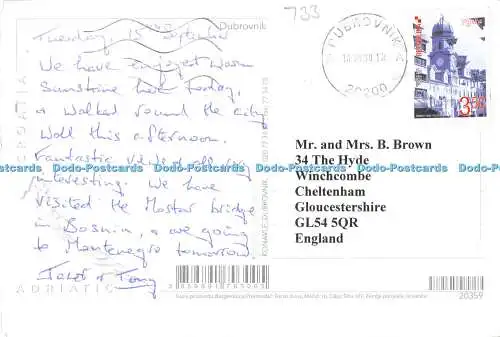 733
Dubrovnik
DUBROVNIK
20200
3.50
Tuesday 15 September
We have enjoyed warm
sunshine here today,
& walked round the city
wall this afternoon.
Fantastic views & all very
interesting. We have
visited the Mostar bridge
in Bosnia, & we going
to Montenegro tomorrow
Janet & Tony
Mr. and Mrs. B. Brown
34 The Hyde
Winchcombe
Cheltenham
Gloucestershire
GL54 5QR
England
Dodo-Postcards Dodo-Postcards Dodo-Postcards Dodo-Postcards Dodo-Postcards
ADRIATIC
20359